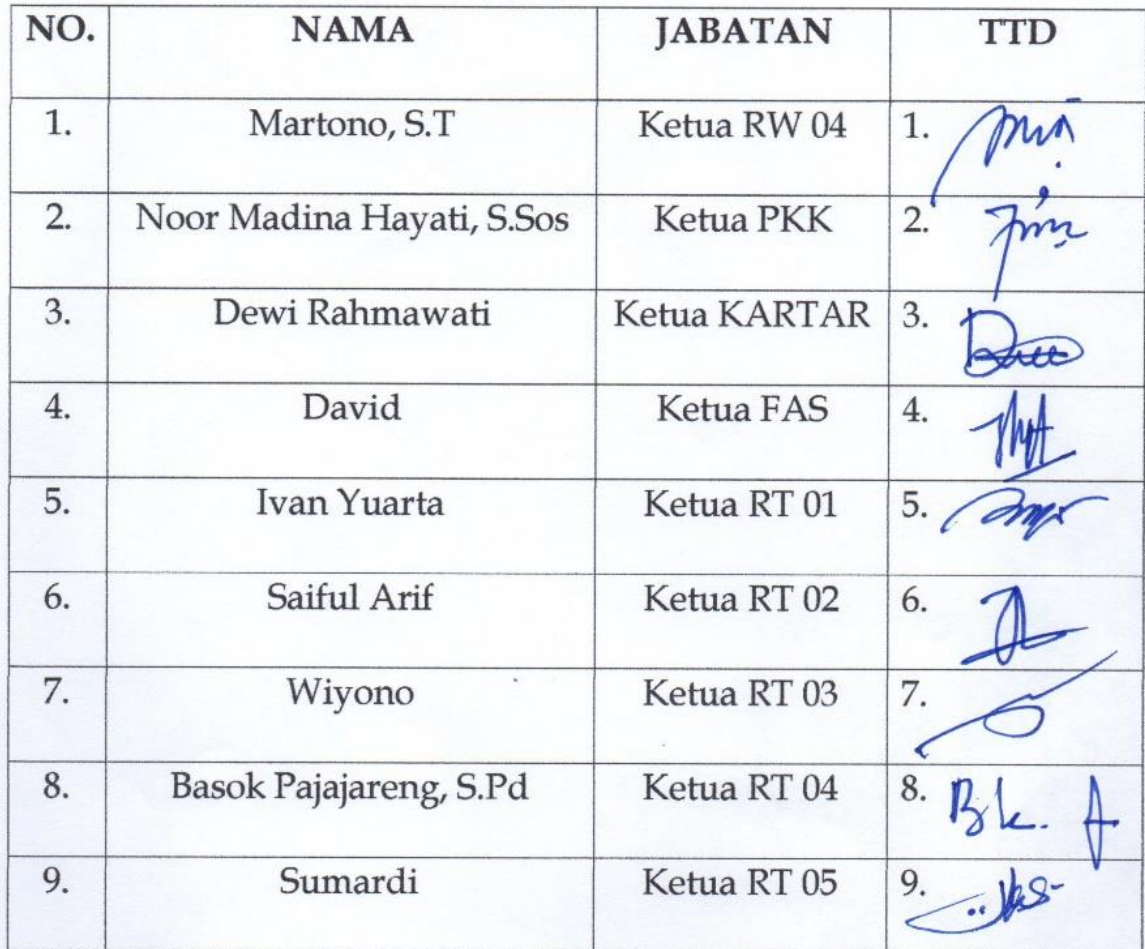 NO. NAMA JABATAN TTD
1. Martono, S.T Ketua RW 04 1.
2. Noor Madina Hayati, S.Sos Ketua PKK 2.
3. Dewi Rahmawati Ketua KARTAR 3.
4. David Ketua FAS 4.
5. Ivan Yuarta Ketua RT 01 5.
6. Saiful Arif Ketua RT 02 6.
7. Wiyono Ketua RT 03 7.
8. Basok Pajajareng, S.Pd Ketua RT 04 8.
9. Sumardi Ketua RT 05 9.